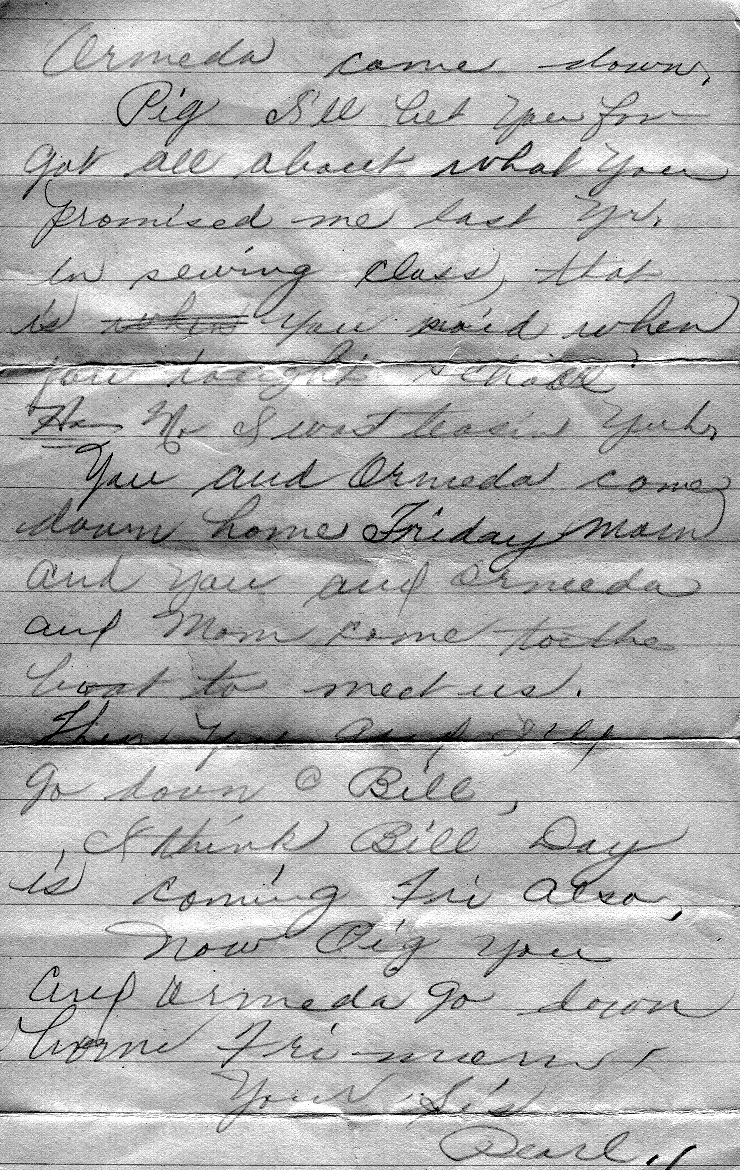 Ormeda come down,
Pig I'll bet you for
got all about what you
promised me last yr.
in sewing class, that
is when you said when
you taught school
Ha No I was teasin yuh,
You and Ormeda come
down home Friday morn
and you and Ormeda
and Mom come to the
boat to meet us.
Then you and I'll
go down @ Bill,
I think Bill Day
is coming Fri also,
Now Pig you
and Ormeda go down
home Fri-morn
Your Sis
Pearl,,